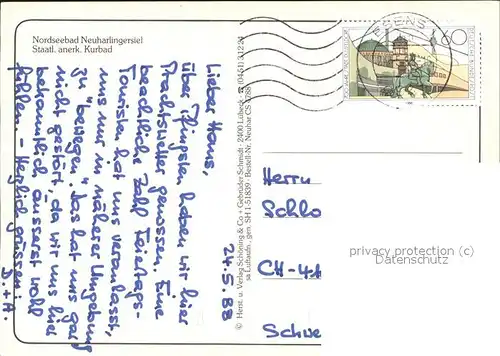 Nordseebad Neuharlingersiel
Staatl. anerk. Kurbad
Lieber Hans,
über Pfingsten haben wir hier
Prachtswetter genossen. Eine
beachtliche Zahl Feiertags-
Touristen hat uns veranlasst,
uns nur in näherer Umgebung
zu "bewegen". Das hat uns gar
nicht gestört, da wir uns hier
bekanntlich äusserst wohl
fühlen. - Herzlich grüssen
24.5.88
© Herst. u. Verlag Schöning & Co + Gebrüder Schmidt · 2400 Lübeck
sa Luftaufn., gen. SH 1-51839 · Bestell-Nr. Neuhar CS
ENS
60
Herrn
Schlo
CH-4
Schwe
privacy protection (c)
Datenschutz